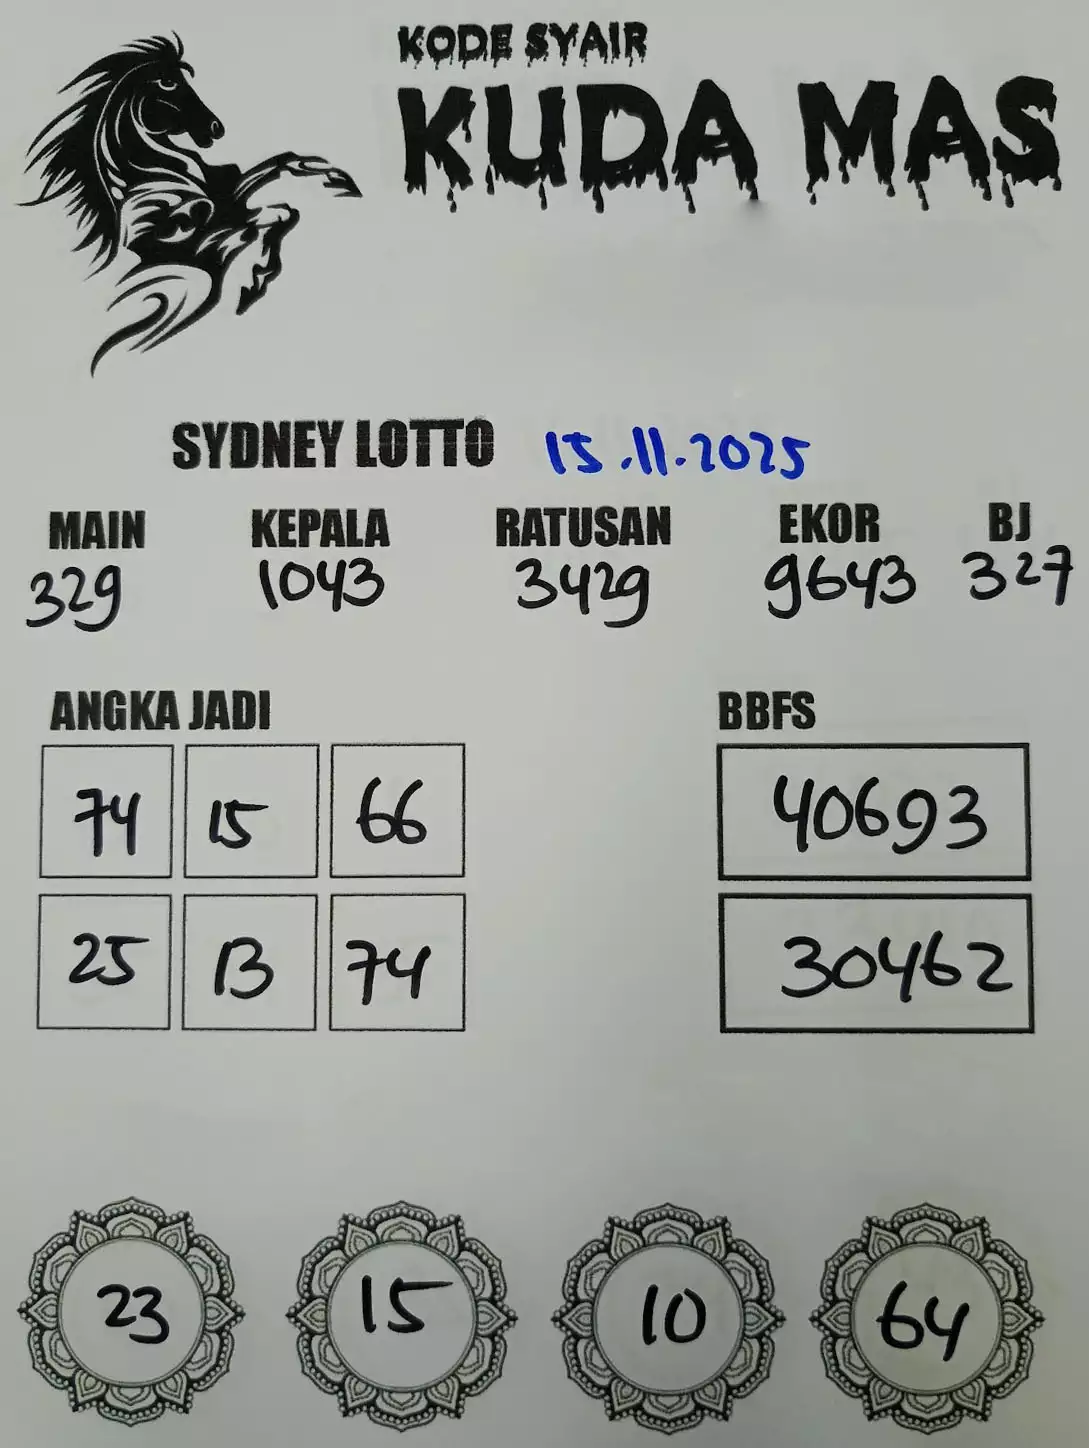 KODE SYAIR
KUDA MAS
SYDNEY LOTTO 15.11.2025
MAIN KEPALA RATUSAN EKOR BJ
329 1043 3429 9643 327
ANGKA JADI BBFS
74 15 66 40693
25 13 74 30462
23 15 10 64